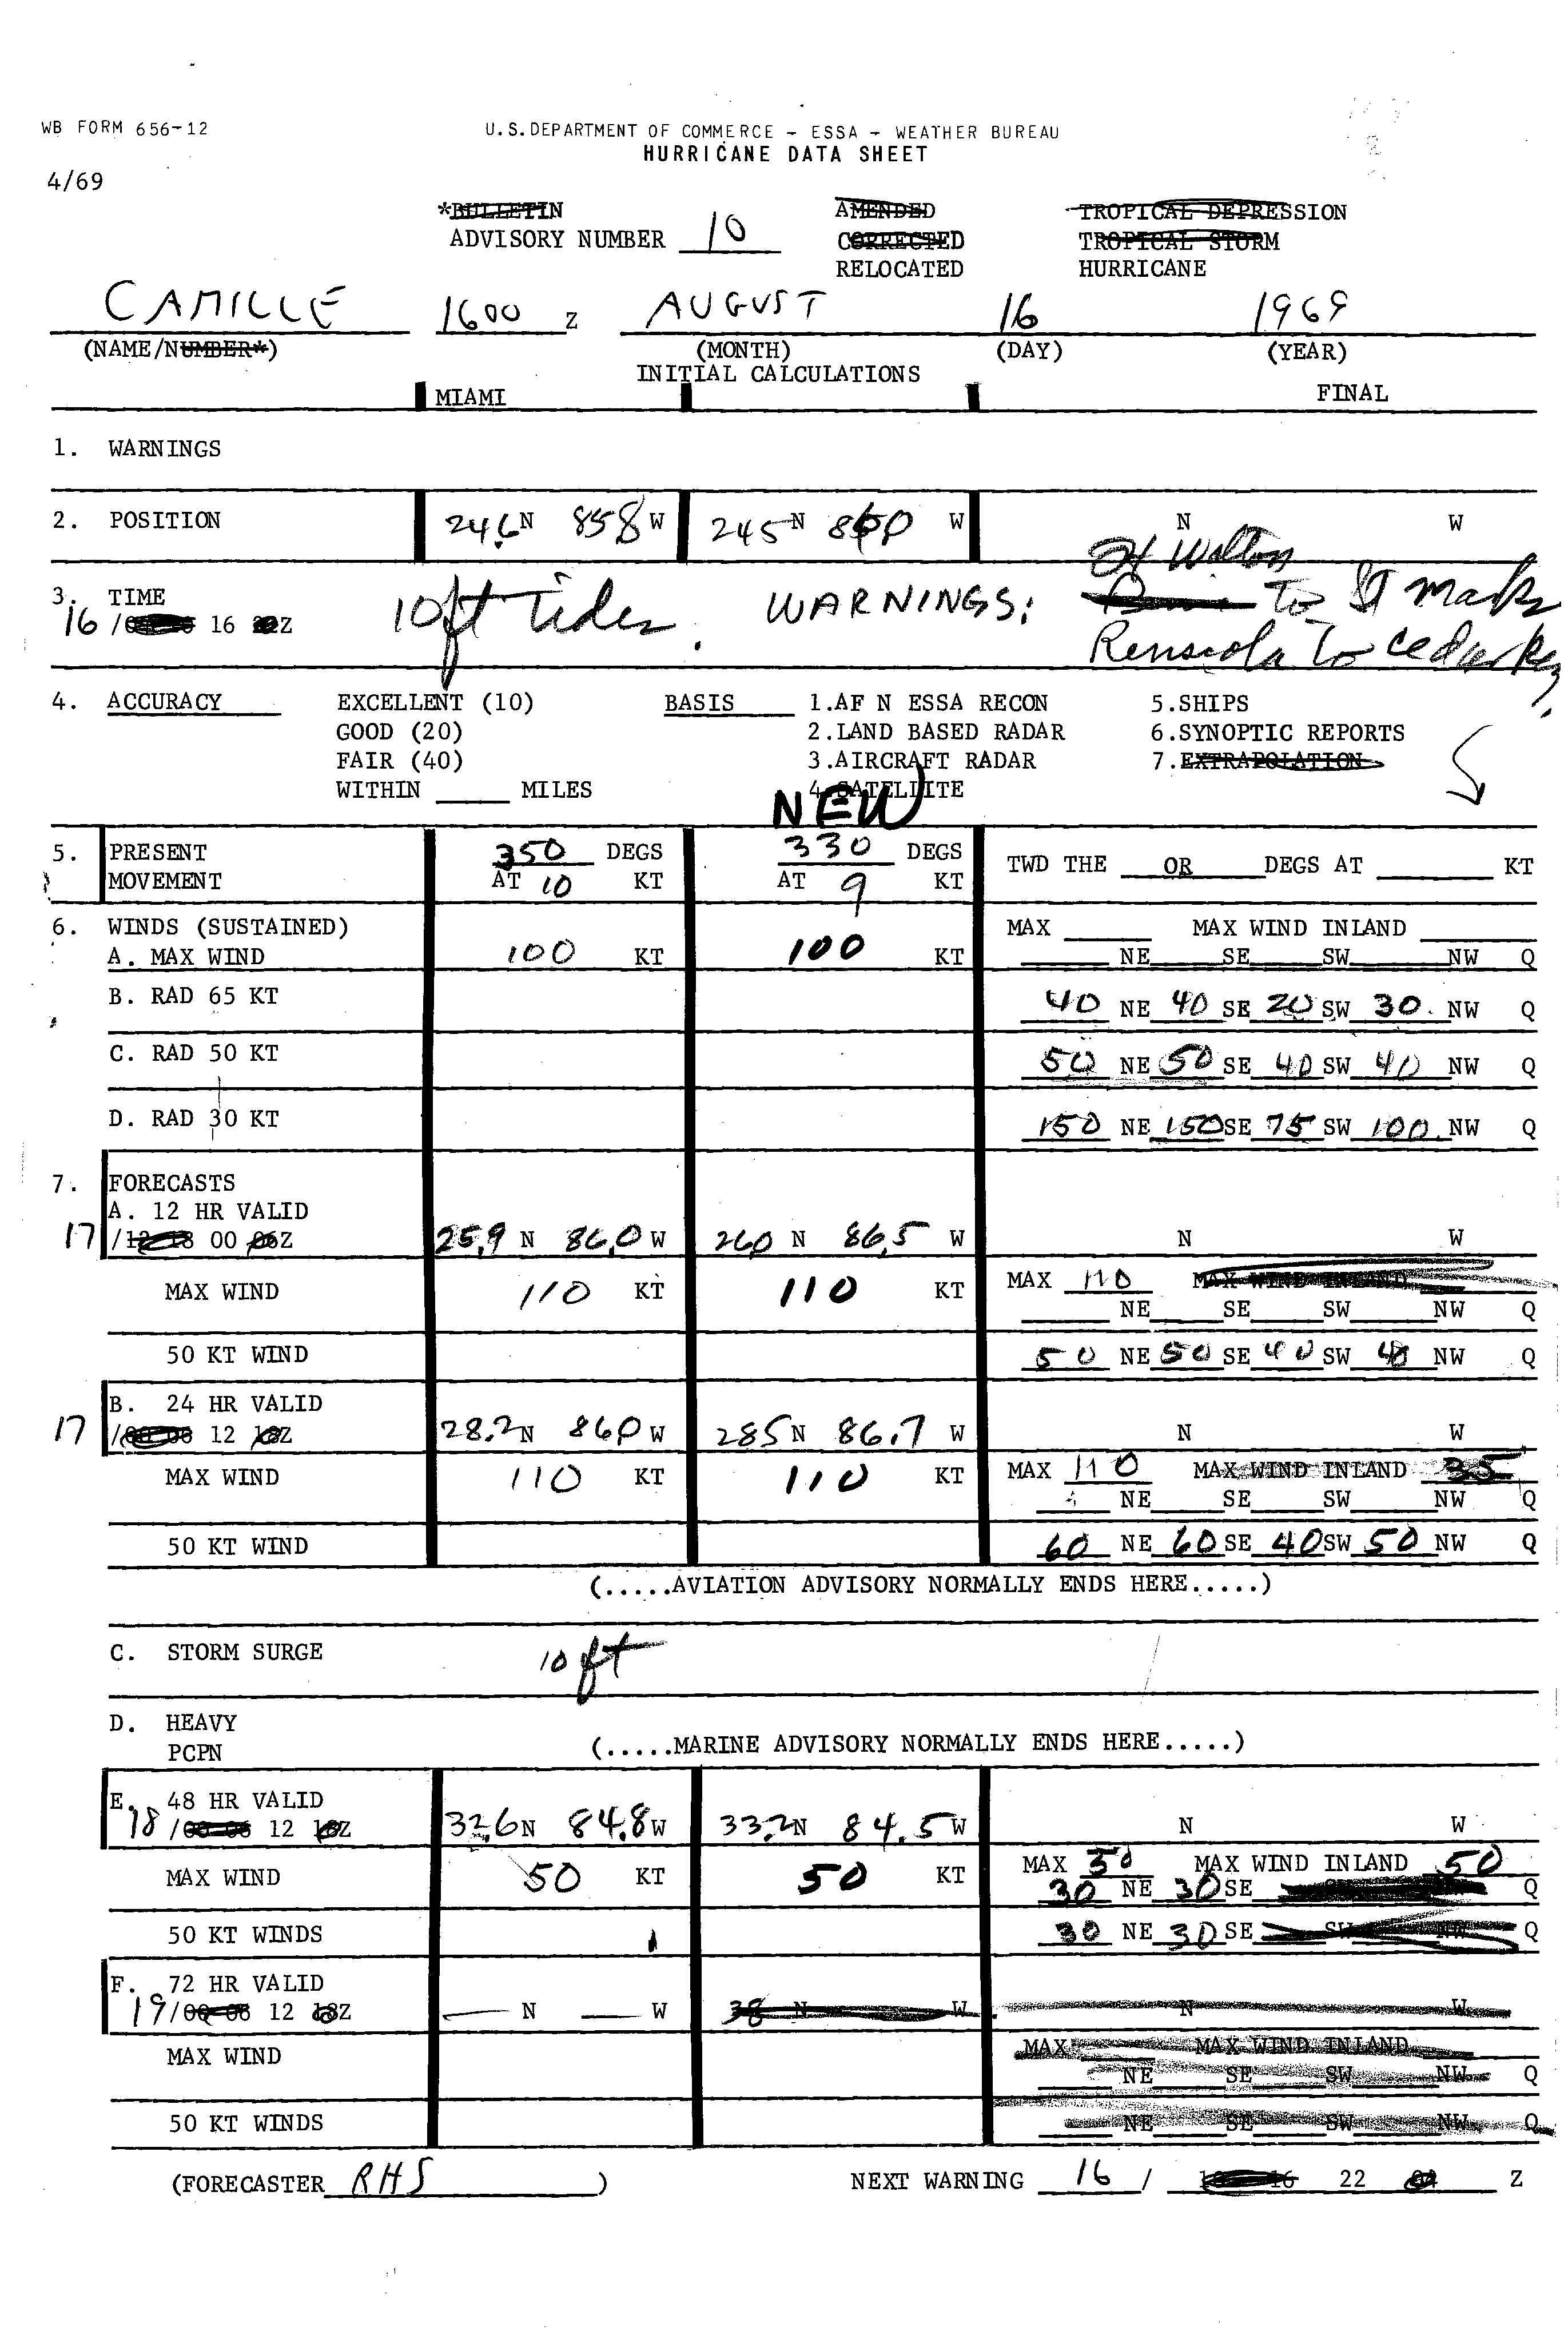 WB FORM 656-12
U.S. DEPARTMENT OF COMMERCE - ESSA - WEATHER BUREAU
HURRICANE DATA SHEET
4/69
*BULLETIN AMENDED TROPICAL DEPRESSION
ADVISORY NUMBER 10 CORRECTED TROPICAL STORM
RELOCATED HURRICANE
CAMILLE 1600 Z AUGUST 16 1969
(NAME/NUMBER*) (MONTH) (DAY) (YEAR)
INITIAL CALCULATIONS
MIAMI FINAL
1. WARNINGS
2. POSITION 24.6 N 85.8 W 245 N 860 W N W
Ft Walton
3. TIME 10 ft Tides. WARNINGS: To St Marks
16/ 16 Z
Pensacola To Cedar Key.
4. ACCURACY EXCELLENT (10) BASIS 1.AF N ESSA RECON 5.SHIPS
GOOD (20) 2.LAND BASED RADAR 6.SYNOPTIC REPORTS
FAIR (40) 3.AIRCRAFT RADAR 7.EXTRAPOLATION
WITHIN MILES 4.SATELLITE
NEW
5. PRESENT 350 DEGS 330 DEGS TWD THE OR DEGS AT KT
MOVEMENT AT 10 KT AT 9 KT
6. WINDS (SUSTAINED) MAX MAX WIND INLAND
A. MAX WIND 100 KT 100 KT NE SE SW NW Q
B. RAD 65 KT 40 NE 40 SE 20 SW 30 NW Q
C. RAD 50 KT 50 NE 50 SE 40 SW 40 NW Q
D. RAD 30 KT 150 NE 150 SE 75 SW 100 NW Q
7. FORECASTS
A. 12 HR VALID
17/12 18 00 06Z 25.9 N 86.0 W 260 N 86.5 W N W
MAX WIND 110 KT 110 KT MAX 110 MAX WIND INLAND
NE SE SW NW Q
50 KT WIND 50 NE 50 SE 40 SW 40 NW Q
B. 24 HR VALID
17/00 06 12 18Z 28.2 N 860 W 285 N 86.7 W N W
MAX WIND 110 KT 110 KT MAX 110 MAX WIND INLAND 35
NE SE SW NW Q
50 KT WIND 60 NE 60 SE 40 SW 50 NW Q
(.....AVIATION ADVISORY NORMALLY ENDS HERE.....)
C. STORM SURGE 10 ft
D. HEAVY
PCPN (.....MARINE ADVISORY NORMALLY ENDS HERE.....)
E. 48 HR VALID
18/00 06 12 18Z 32.6 N 84.8 W 33.2 N 84.5 W N W
MAX WIND 50 KT 50 KT MAX 50 MAX WIND INLAND 50
30 NE 30 SE Q
50 KT WINDS 30 NE 30 SE SW NW Q
F. 72 HR VALID
19/00 06 12 18Z N W 38 N W N W
MAX WIND MAX MAX WIND INLAND
NE SE SW NW Q
50 KT WINDS NE SE SW NW Q
(FORECASTER RHS) NEXT WARNING 16 / 16 22 04 Z